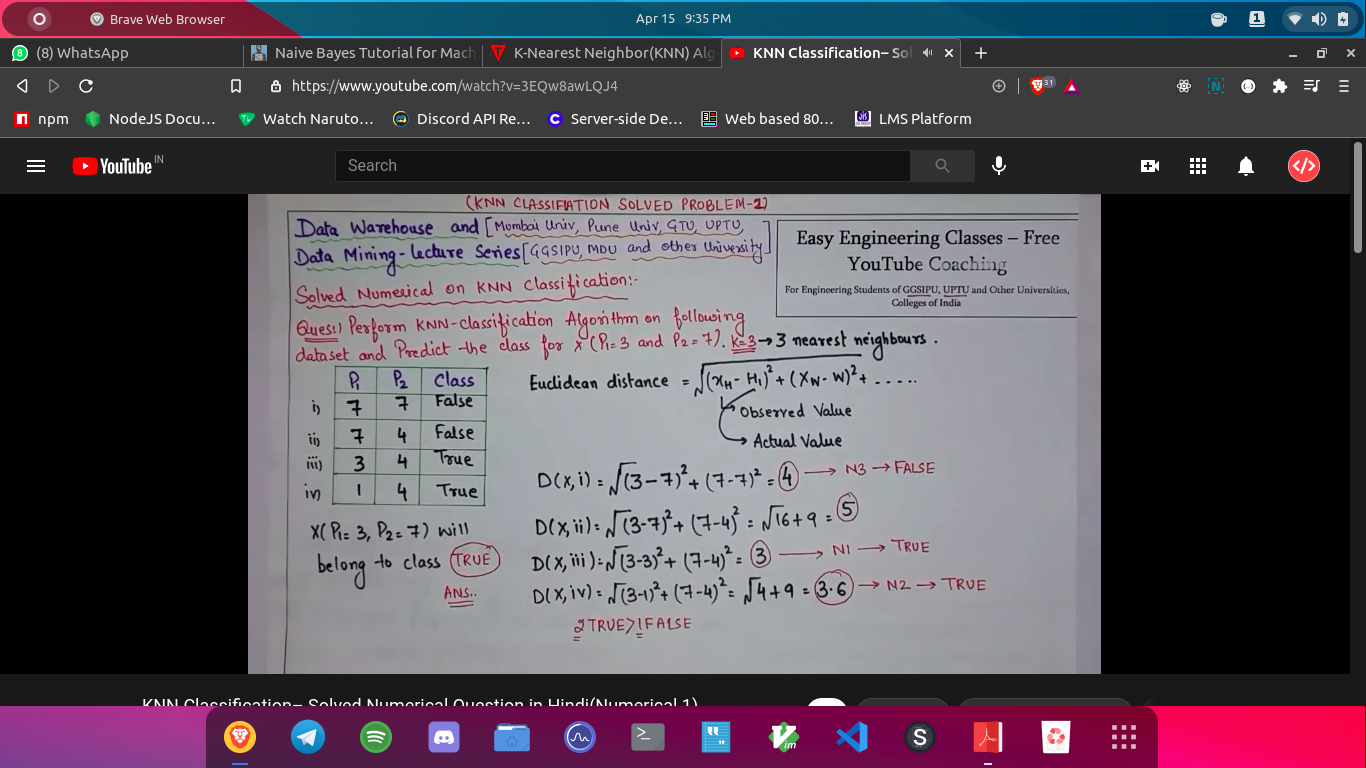 Brave Web Browser
Apr 15 9:35 PM
1
(8) WhatsApp
Naive Bayes Tutorial for Mach
K-Nearest Neighbor(KNN) Alg
KNN Classification– Sol
https://www.youtube.com/watch?v=3EQw8awLQJ4
31
npm
NodeJS Docu...
Watch Naruto...
Discord API Re...
Server-side De...
Web based 80...
LMS Platform
YouTube IN
Search
(KNN CLASSIFIATION SOLVED PROBLEM-1)
Data Warehouse and [Mumbai Univ, Pune Univ, GTU, UPTU,
Data Mining-Lecture Series [GGSIPU, MDU and other University]
Easy Engineering Classes – Free
YouTube Coaching
For Engineering Students of GGSIPU, UPTU and Other Universities,
Colleges of India
Solved Numerical on KNN Classification:-
Ques:) Perform KNN-classification Algorithm on following
dataset and Predict the class for X (P1=3 and P2=7). K=3 → 3 nearest neighbours.
P1 P2 Class
i) 7 7 False
ii) 7 4 False
iii) 3 4 True
iv) 1 4 True
Euclidean distance = √(XH-H1)²+(XW-W)²+.....
Observed Value
Actual Value
D(x,i) = √(3-7)²+(7-7)² = 4 → N3 → FALSE
D(x,ii) = √(3-7)²+(7-4)² = √16+9 = 5
D(x,iii) = √(3-3)²+(7-4)² = 3 → N1 → TRUE
D(x,iv) = √(3-1)²+(7-4)² = √4+9 = 3.6 → N2 → TRUE
2 TRUE > 1 FALSE
X(P1=3, P2=7) will
belong to class TRUE
ANS..
KNN Classification– Solved Numerical Question in Hindi(Numerical 1)